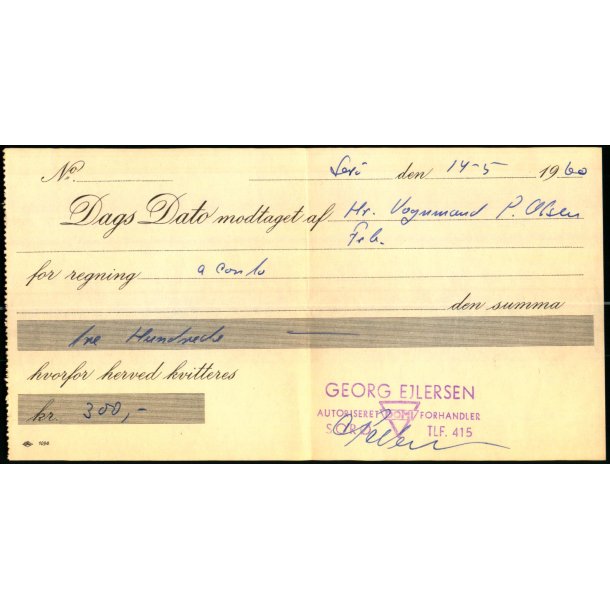 No. Sorö den 14-5 1960
Dags Dato modtaget af Hr. Vognmand P. Olsen
Frb.
for regning a conto
den summa
tre Hundrede
hvorfor herved kvitteres
kr. 300,-
GEORG EJLERSEN
AUTORISERET DOMI FORHANDLER
SORØ TLF. 415
1094